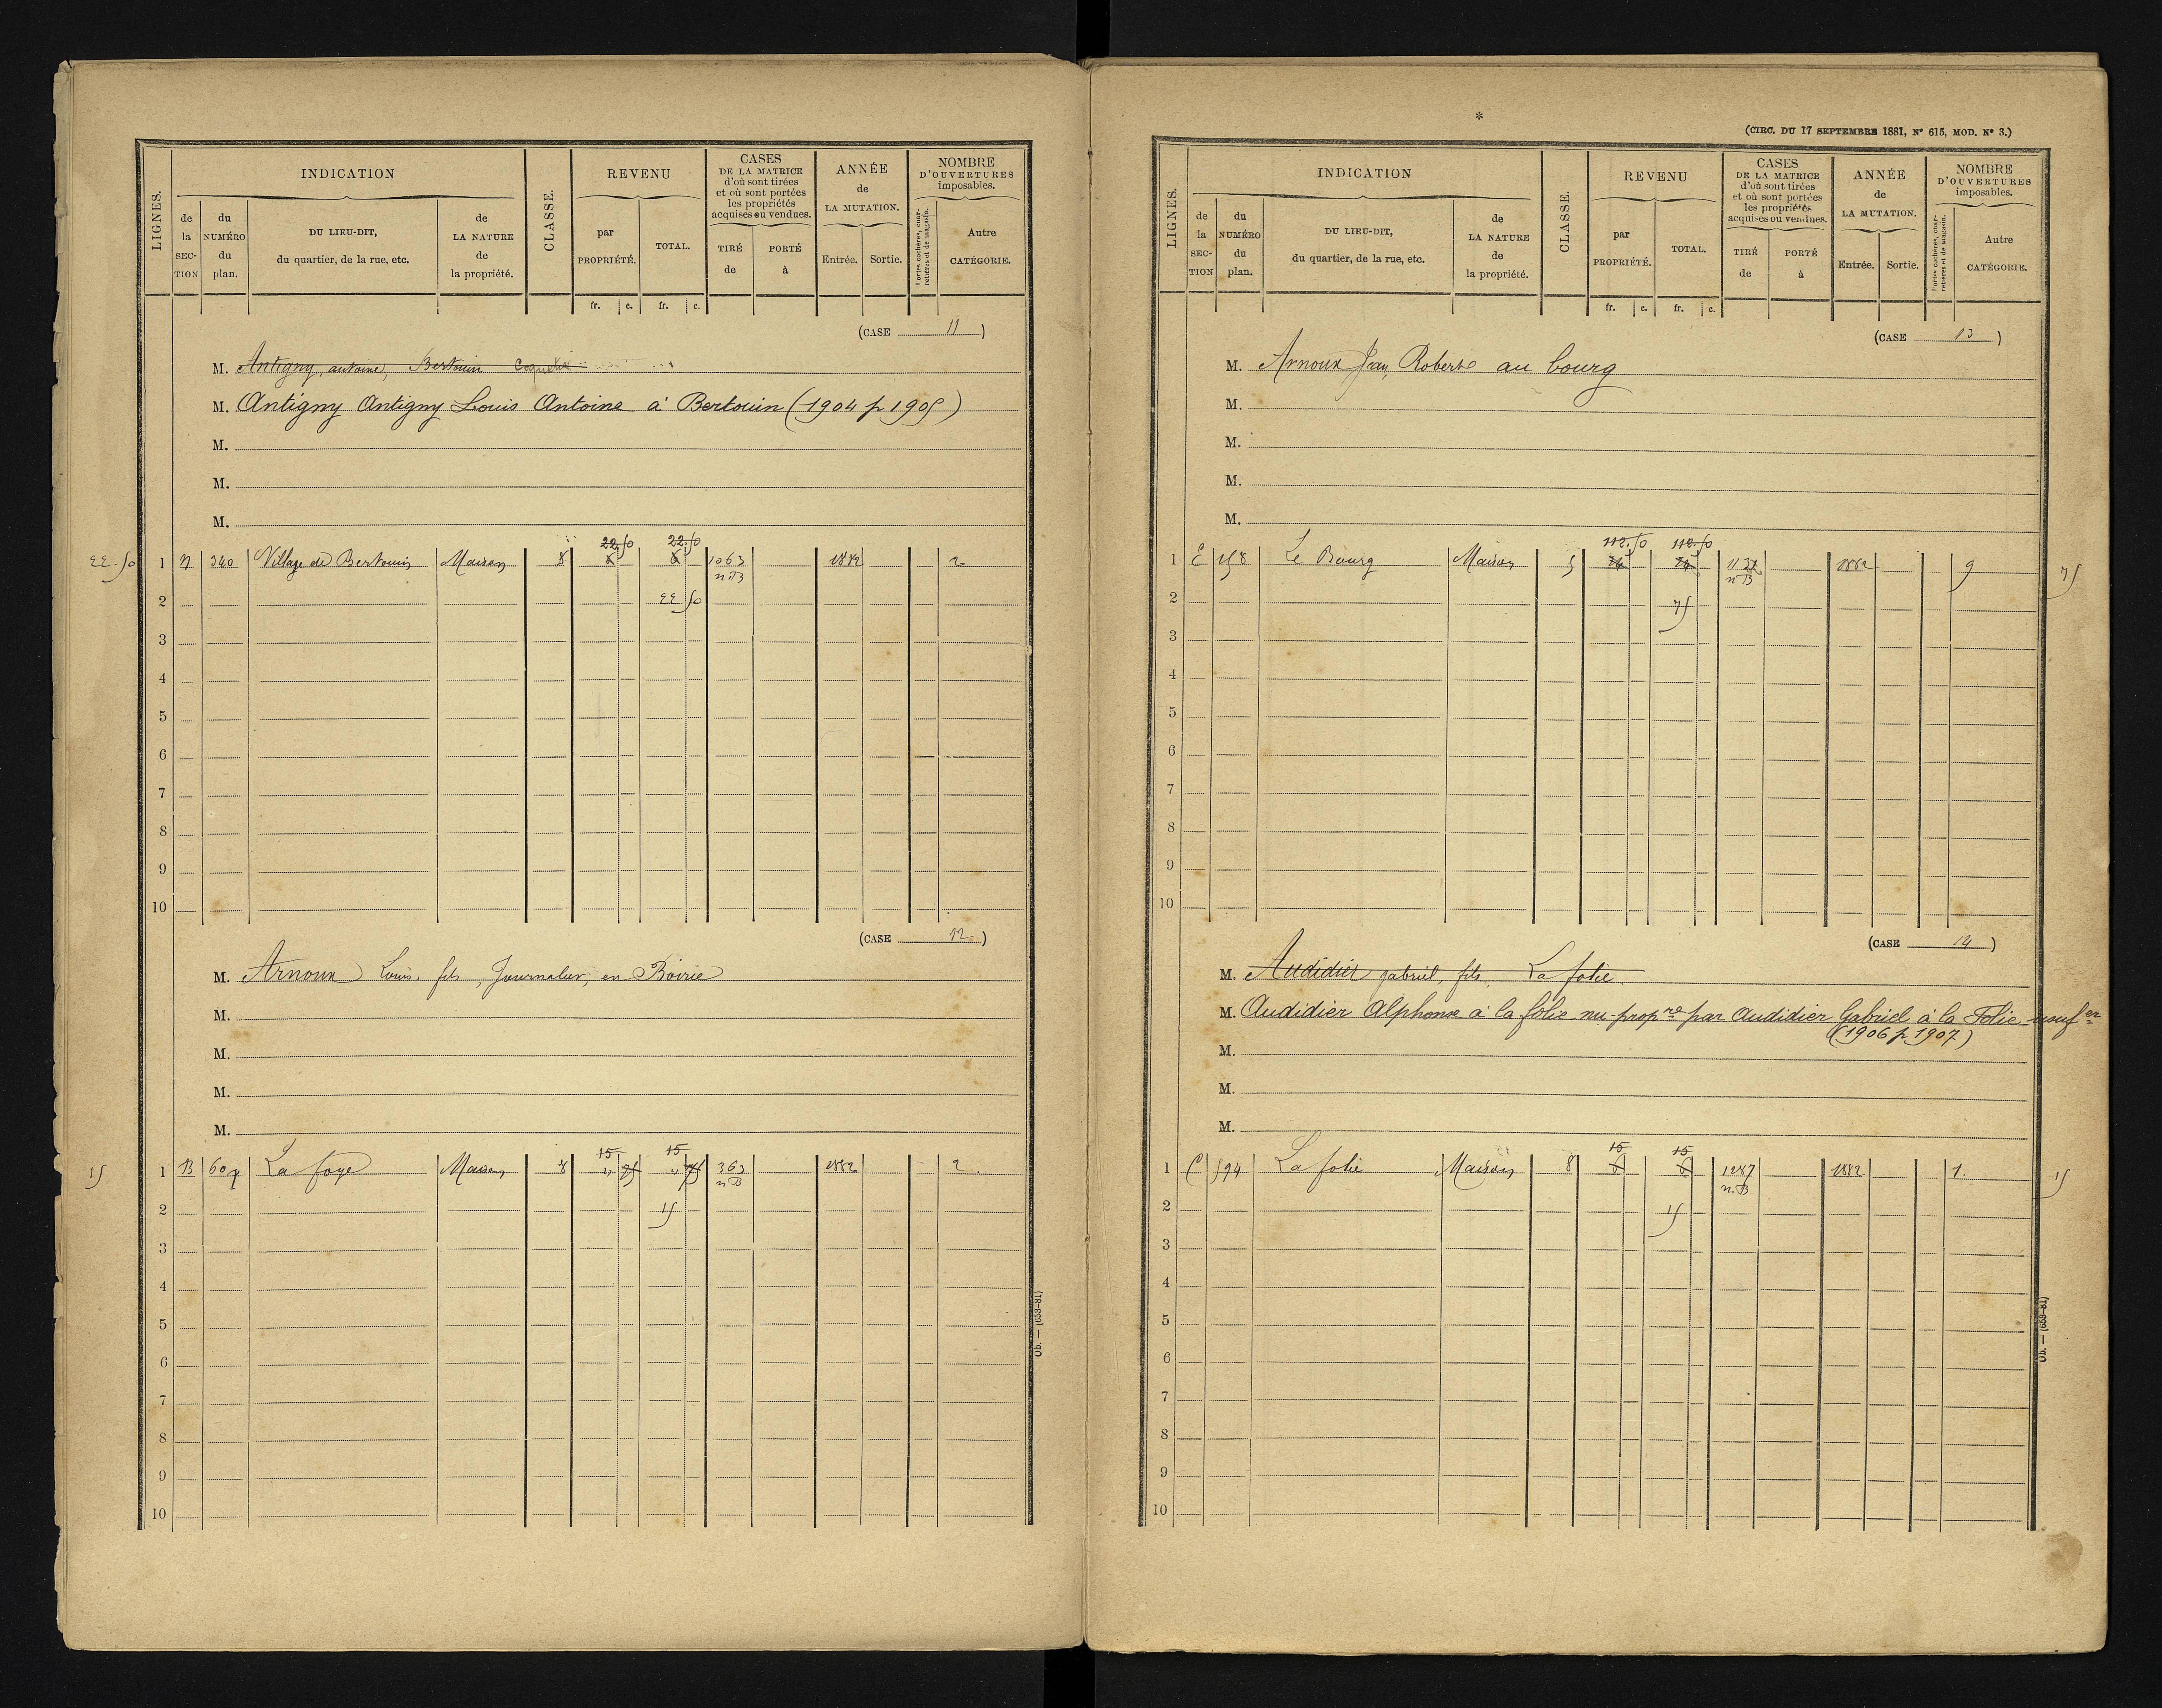 LIGNES.
INDICATION
de la SECTION
du NUMÉRO du plan.
DU LIEU-DIT, du quartier, de la rue, etc.
de LA NATURE de la propriété.
CLASSE.
REVENU
par PROPRIÉTÉ.
TOTAL.
fr. c. fr. c.
CASES DE LA MATRICE d'où sont tirées et où sont portées les propriétés acquises ou vendues.
TIRÉ de
PORTÉ à
ANNÉE de LA MUTATION.
Entrée. Sortie.
NOMBRE D'OUVERTURES imposables.
Portes cochères, charretières et de magasin.
Autre CATÉGORIE.
(CASE 11)
M. Antigny, antoine, Bertouin
M. Antigny Antigny Louis Antoine à Bertouin (1904 p 1905)
M.
M.
M.
22.50 22.50
22.50 1 340 Village de Bertouin Maison 8 6 6 1063 1882 2
nB
2 22 50
3
4
5
6
7
8
9
10
(CASE 12)
M. Arnoux Louis, fils, Journalier, en Boirie
M.
M.
M.
M.
15 15
15 1 B 607 La foye Maison 8 " 75 " 75 363 1882 2.
nB
2 15
3
4
5
6
7
8
9
10
Ob. — (653-81)
*
(CIRC. DU 17 SEPTEMBRE 1881, N° 615, MOD. N° 3.)
LIGNES.
INDICATION
de la SECTION
du NUMÉRO du plan.
DU LIEU-DIT, du quartier, de la rue, etc.
de LA NATURE de la propriété.
CLASSE.
REVENU
par PROPRIÉTÉ.
TOTAL.
fr. c. fr. c.
CASES DE LA MATRICE d'où sont tirées et où sont portées les propriétés acquises ou vendues.
TIRÉ de
PORTÉ à
ANNÉE de LA MUTATION.
Entrée. Sortie.
NOMBRE D'OUVERTURES imposables.
Portes cochères, charretières et de magasin.
Autre CATÉGORIE.
(CASE 13)
M. Arnoux Jean, Roberte au bourg
M.
M.
M.
M.
112.50 112.50
1 E Le Bourg Maison 5 1882 9 75
nB
2 75
3
4
5
6
7
8
9
10
(CASE 14)
M. Audidier gabriel, fils, La folie
M. Audidier Alphonse à la folie nu-propre par Audidier Gabriel à la Folie usufer
(1906 p 1907)
M.
M.
M.
15 15
1 C 594 La folie Maison 8 6 6 1287 1882 1. 15
n.B
2 15
3
4
5
6
7
8
9
10
Ob. — (653-81)